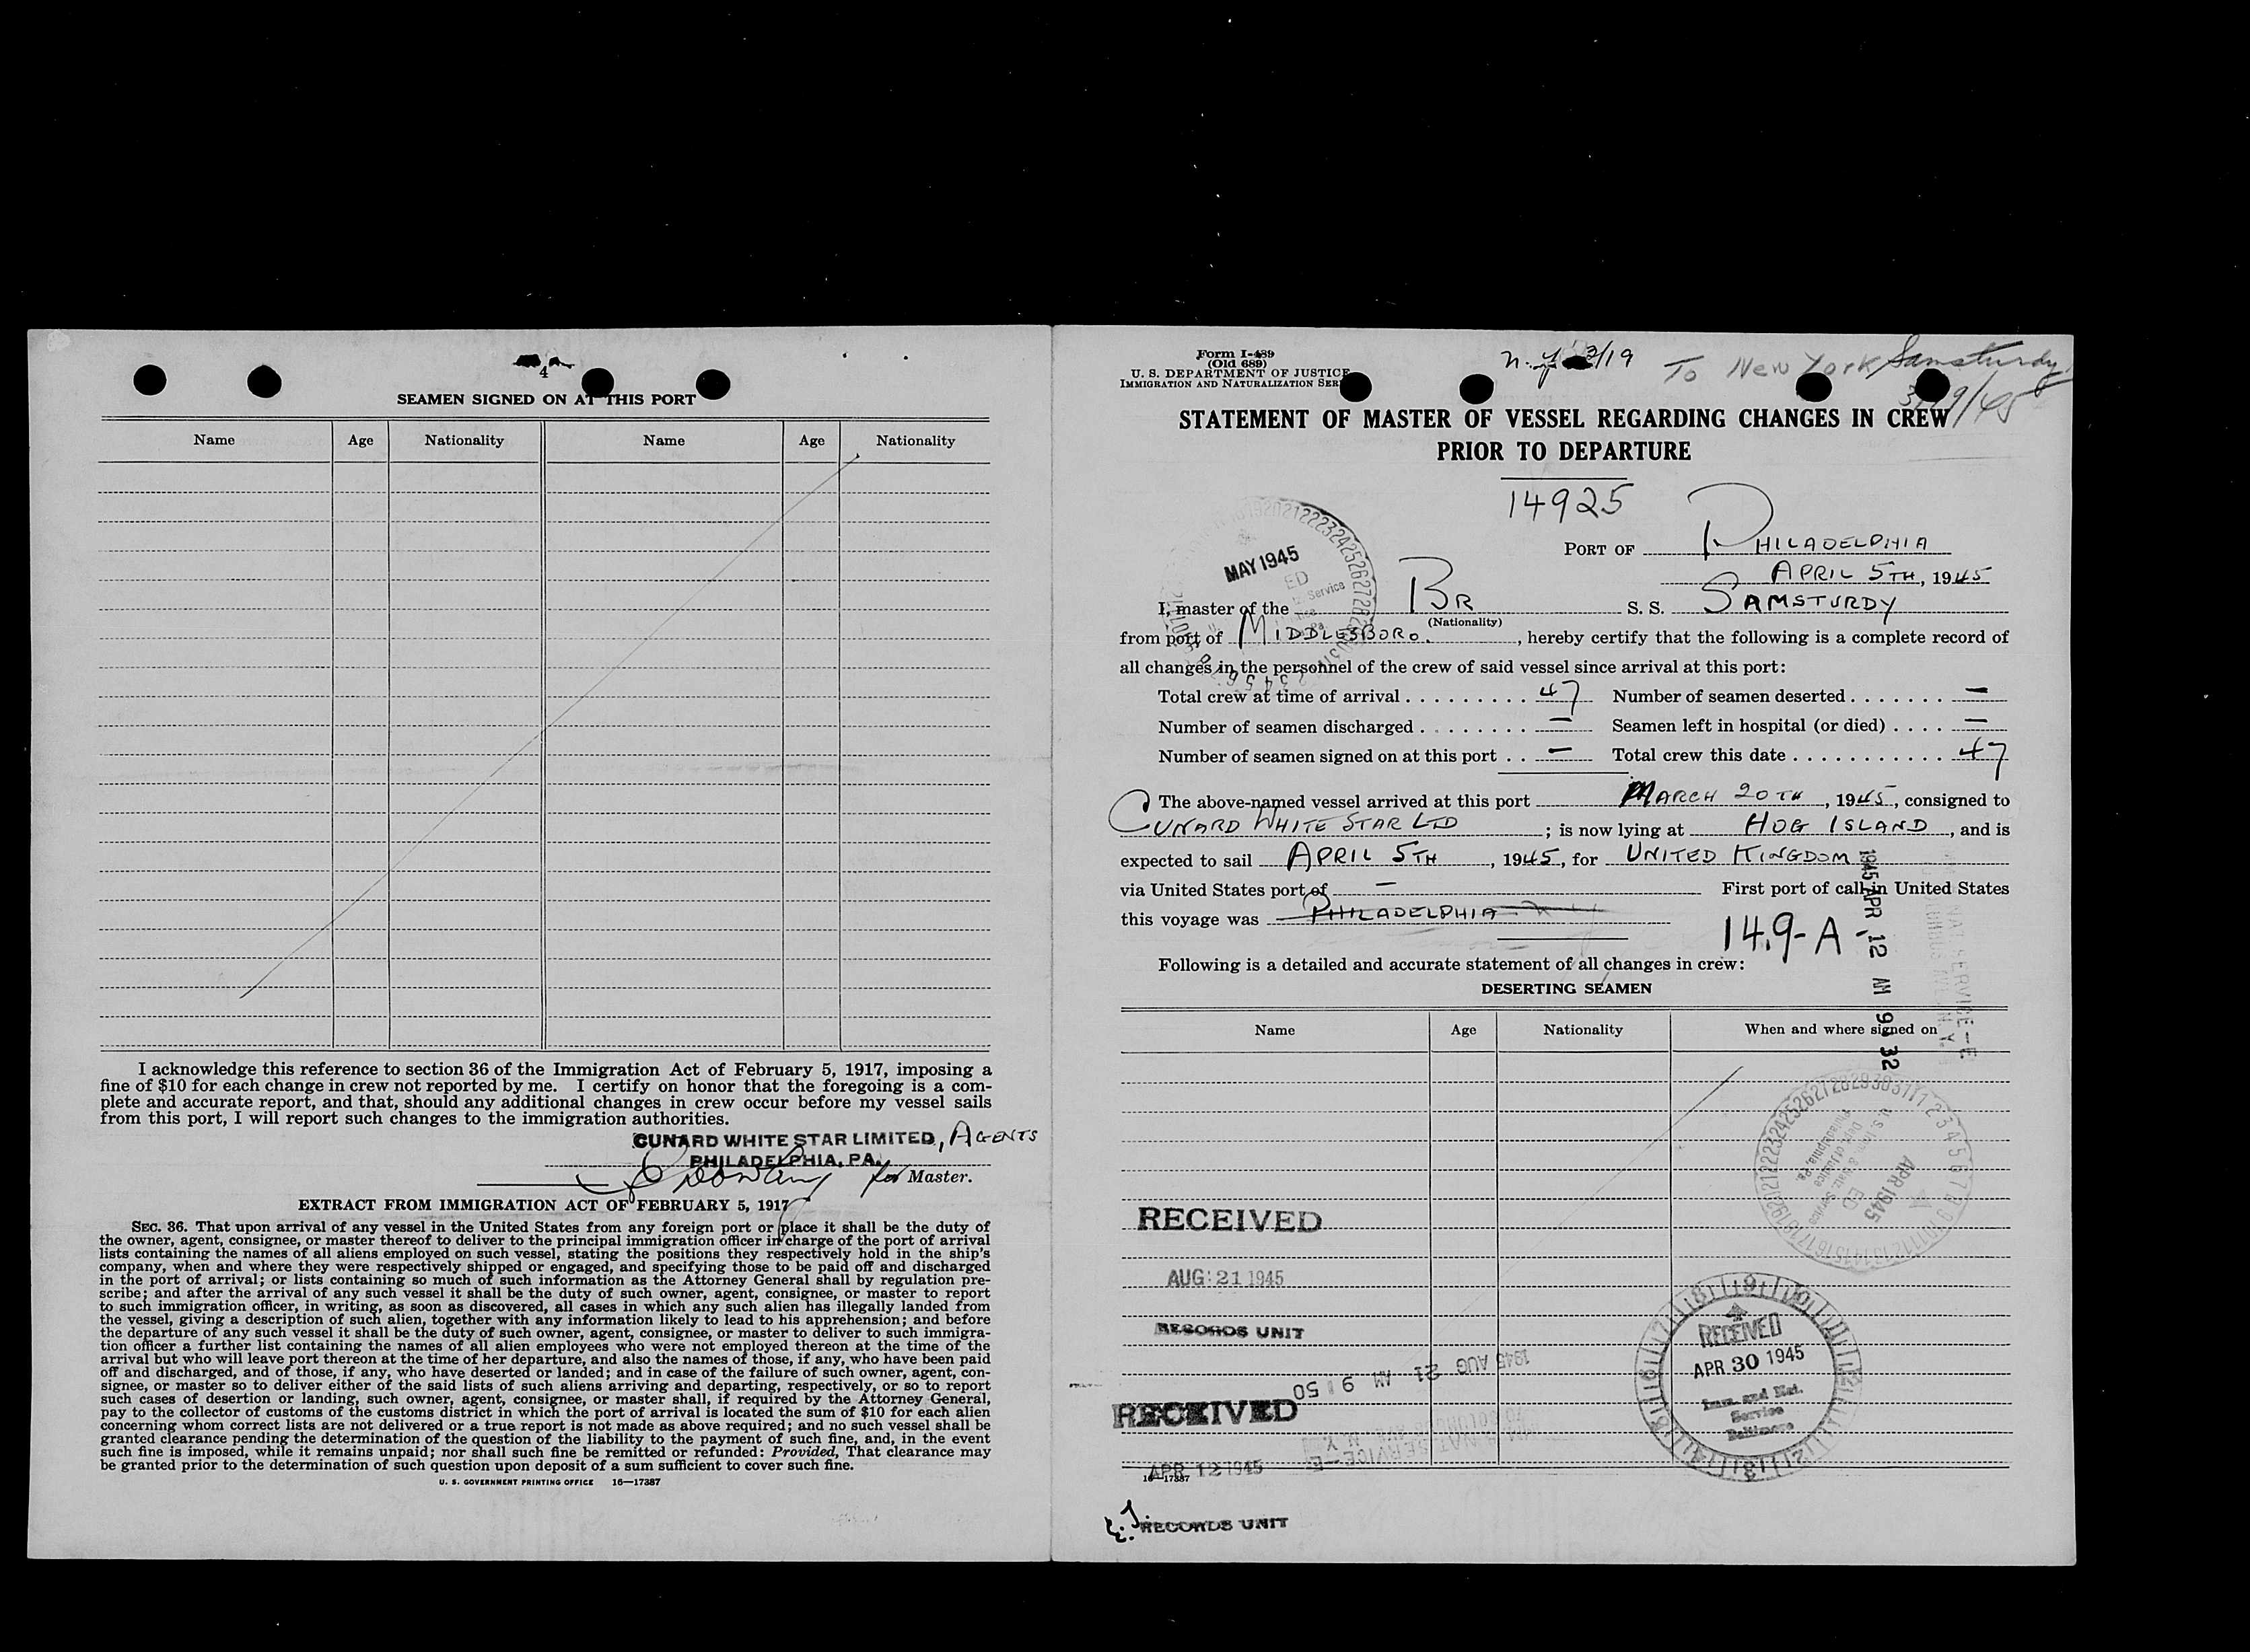 4
SEAMEN SIGNED ON AT THIS PORT
Name Age Nationality Name Age Nationality
I acknowledge this reference to section 36 of the Immigration Act of February 5, 1917, imposing a
fine of $10 for each change in crew not reported by me. I certify on honor that the foregoing is a com-
plete and accurate report, and that, should any additional changes in crew occur before my vessel sails
from this port, I will report such changes to the immigration authorities.
CUNARD WHITE STAR LIMITED, AGENTS
PHILADELPHIA, PA.
for Master.
EXTRACT FROM IMMIGRATION ACT OF FEBRUARY 5, 1917
SEC. 36. That upon arrival of any vessel in the United States from any foreign port or place it shall be the duty of
the owner, agent, consignee, or master thereof to deliver to the principal immigration officer in charge of the port of arrival
lists containing the names of all aliens employed on such vessel, stating the positions they respectively hold in the ship's
company, when and where they were respectively shipped or engaged, and specifying those to be paid off and discharged
in the port of arrival; or lists containing so much of such information as the Attorney General shall by regulation pre-
scribe; and after the arrival of any such vessel it shall be the duty of such owner, agent, consignee, or master to report
to such immigration officer, in writing, as soon as discovered, all cases in which any such alien has illegally landed from
the vessel, giving a description of such alien, together with any information likely to lead to his apprehension; and before
the departure of any such vessel it shall be the duty of such owner, agent, consignee, or master to deliver to such immigra-
tion officer a further list containing the names of all alien employees who were not employed thereon at the time of the
arrival but who will leave port thereon at the time of her departure, and also the names of those, if any, who have been paid
off and discharged, and of those, if any, who have deserted or landed; and in case of the failure of such owner, agent, con-
signee, or master so to deliver either of the said lists of such aliens arriving and departing, respectively, or so to report
such cases of desertion or landing, such owner, agent, consignee, or master shall, if required by the Attorney General,
pay to the collector of customs of the customs district in which the port of arrival is located the sum of $10 for each alien
concerning whom correct lists are not delivered or a true report is not made as above required; and no such vessel shall be
granted clearance pending the determination of the question of the liability to the payment of such fine, and, in the event
such fine is imposed, while it remains unpaid; nor shall such fine be remitted or refunded: Provided, That clearance may
be granted prior to the determination of such question upon deposit of a sum sufficient to cover such fine.
U. S. GOVERNMENT PRINTING OFFICE 16—17387
Form I-489
(Old 689)
U. S. DEPARTMENT OF JUSTICE
IMMIGRATION AND NATURALIZATION SER
N.Y. 3/19 To New York Samsturdy
3/19/45
STATEMENT OF MASTER OF VESSEL REGARDING CHANGES IN CREW
PRIOR TO DEPARTURE
14925
PORT OF PHILADELPHIA
APRIL 5TH, 1945
MAY 1945
I, master of the BR S. S. SAMSTURDY
(Nationality)
from port of MIDDLESBORO. , hereby certify that the following is a complete record of
all changes in the personnel of the crew of said vessel since arrival at this port:
Total crew at time of arrival 47 Number of seamen deserted —
Number of seamen discharged — Seamen left in hospital (or died) —
Number of seamen signed on at this port — Total crew this date 47
The above-named vessel arrived at this port MARCH 20TH, 1945, consigned to
CUNARD WHITE STAR LTD ; is now lying at HOG ISLAND, and is
expected to sail APRIL 5TH, 1945, for UNITED KINGDOM
via United States port of — First port of call in United States
this voyage was PHILADELPHIA
14.9-A
1945 APR 12 AM 9 32
Following is a detailed and accurate statement of all changes in crew:
DESERTING SEAMEN
Name Age Nationality When and where signed on
APR 1945
RECEIVED
AUG 21 1945
RECORDS UNIT
1945 AUG 21 AM 9 50
RECEIVED
APR 30 1945
Imm. and Nat.
Service
Baltimore
RECEIVED
APR 12 1945
16—17387
E.J. RECORDS UNIT